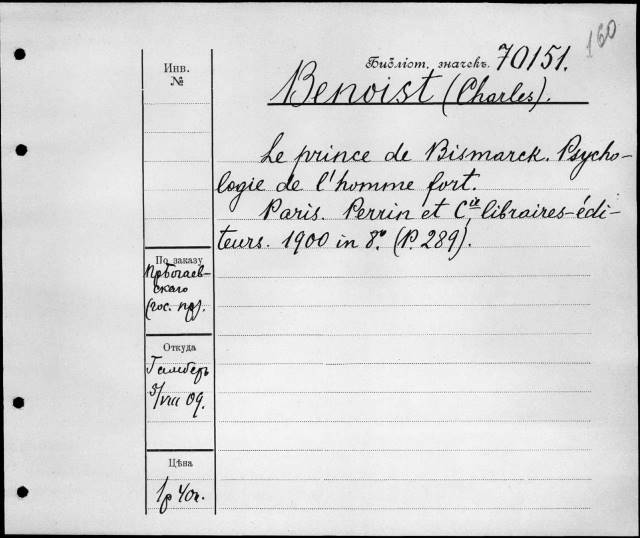 160
Библіот. значекъ 70151.
Benoist (Charles).
Инв.
№
Le prince de Bismarck. Psycho-
logie de l'homme fort.
Paris. Perrin et Cie, libraires-édi-
teurs. 1900 in 8º. (P. 289).
По заказу
Пр Богаев-
скаго
(гос. пр).
Откуда
Гамберъ
5/VIII 09.
Цѣна
1р 40к.